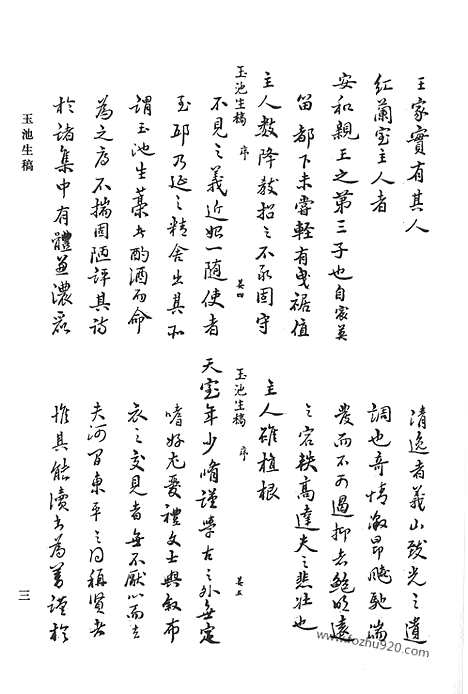 王家實有其人
紅蘭室主人者
安和親王之第三子也自寓燕
留都下未嘗輕有曳裾值
主人數降教招之不承固守
玉池生稿 序 葉四
不見之義近始一隨使者
至邸乃延之精舍出其所
謂玉池生藁者酌酒而命
為之序不揣固陋評其詩
於諸集中有體兼濃麗
清逸者義山致光之遺
調也奇情激昂飈馳湍
發而不可遏抑者鮑明遠
之宕軼高達夫之悲壯也
主人雖植根
玉池生稿 序 葉五
天室年少脩謹學古之外無定
嗜好尤愛禮文士與叙布
衣之交見者無不厭心而去
夫河間東平之同稱賢者
惟其能讀書為善謹於
玉池生稿
三
www.fozhu920.com